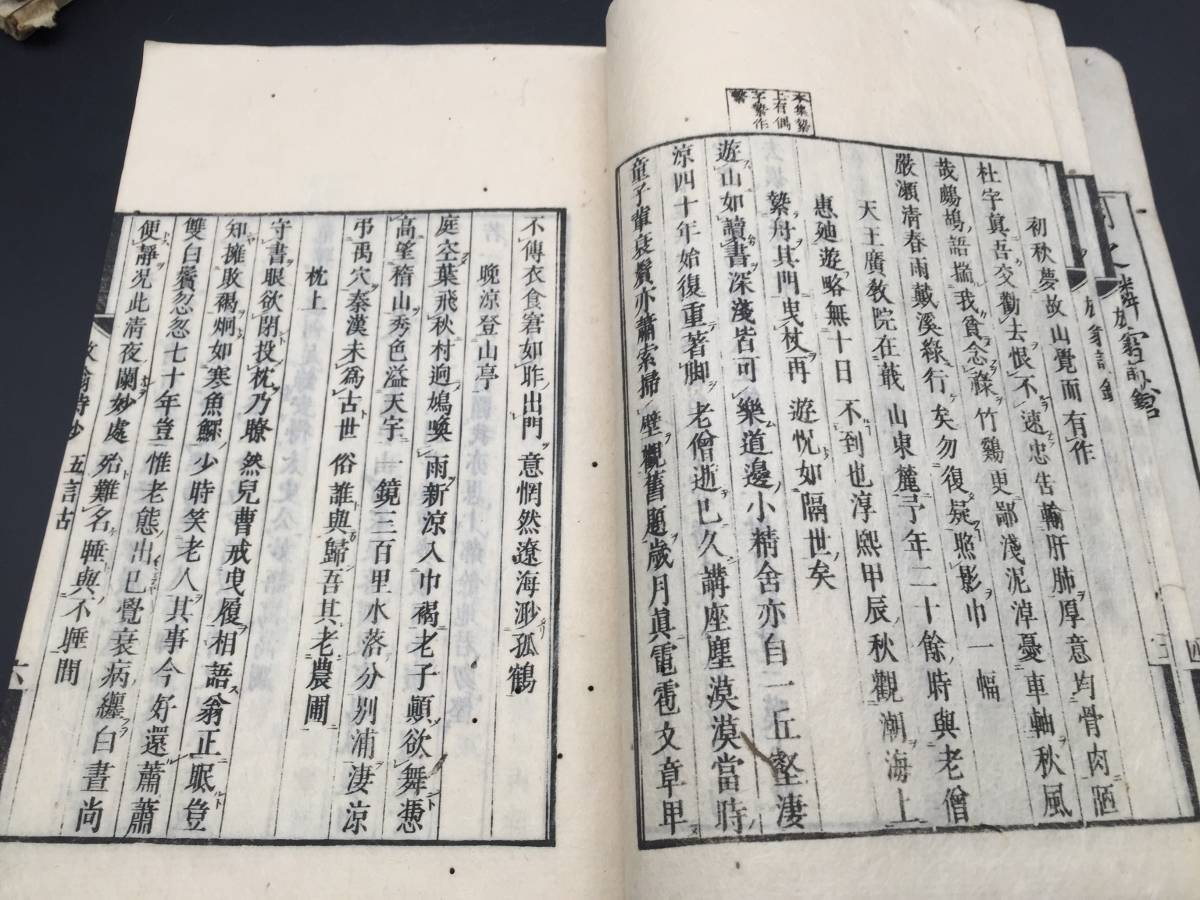 本集繫
上有偶
字繫作
繫
初秋夢故山覺而有作
杜宇真吾交勸去恨不速忠告輸肝肺厚意均骨肉陋
哉鷓鴣語搖我貧念祿竹雞更鄙淺泥淖憂車軸秋風
嚴瀨清春雨戴溪綠行矣勿復疑照影巾一幅
天王廣教院在蕺山東麓予年二十餘時與老僧
惠迪遊略無十日不到也淳熙甲辰秋觀潮海上
繫舟其門曳杖再遊怳如隔世矣
遊山如讀書深淺皆可樂道邊小精舍亦自一丘壑淒
涼四十年始復重著脚老僧逝已久講座塵漠漠當時
童子輩衰鬢亦蕭索掃壁觀舊題歲月真電雹文章甲
不傳衣食窘如昨出門意惘然遼海渺孤鶴
晚涼登山亭
庭空葉飛秋村迥鳩喚雨新涼入巾褐老子顛欲舞憑
高望稽山秀色溢天宇一鏡三百里水落分別浦淒涼
弔禹穴秦漢未為古世俗誰與歸吾其老農圃
枕上
守書眼欲閉投枕乃瞭然兒曹戒曳履相語翁正眠豈
知擁敗褐炯如寒魚鰥少時笑老人其事今好還蕭蕭
雙白鬢忽忽七十年豈惟老態出已覺衰病纏白晝尚
便靜況此清夜闌妙處殆難名睡與不睡間
放翁詩鈔 五言古
六